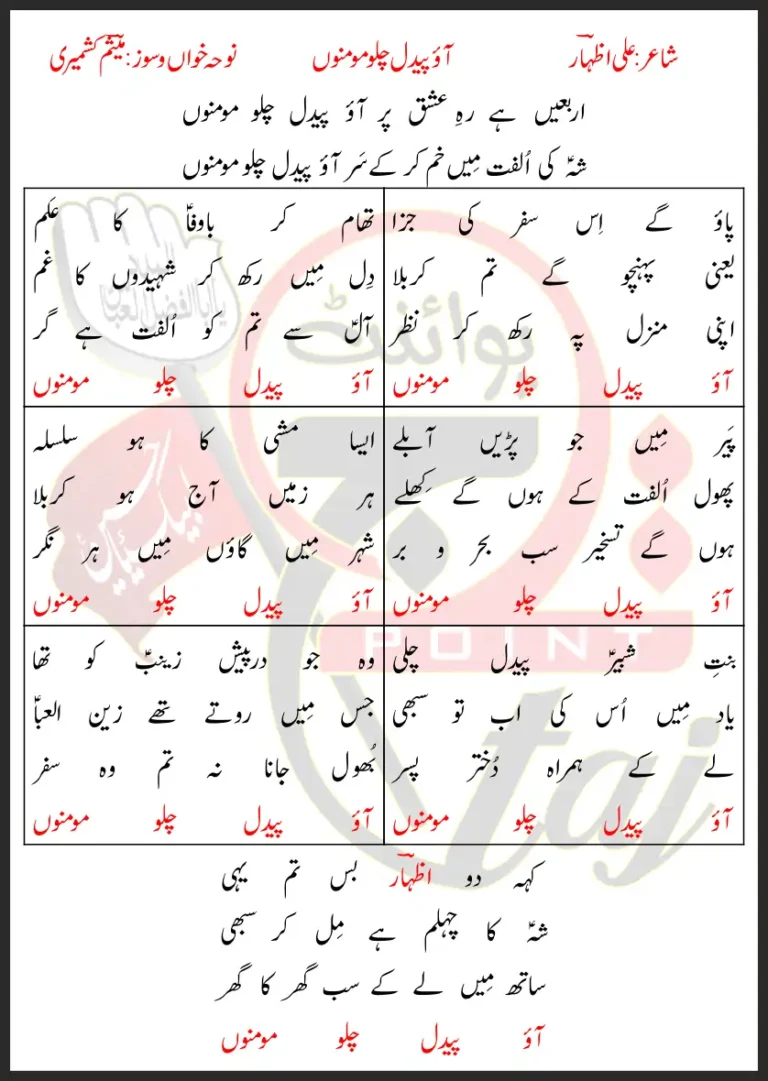 شاعر: علی اظہارؔ آؤ پیدل چلو مومنوں نوحہ خواں و سوز: میثمؔ کشمیری
اربعیں ہے رہِ عشق پر آؤ پیدل چلو مومنوں
شہؑ کی اُلفت مِیں خم کر کے سَر آؤ پیدل چلو مومنوں
پاؤ گے اِس سفر کی جزا
یعنی پہنچو گے تم کربلا
اپنی منزل پہ رکھ کر نظر
آؤ پیدل چلو مومنوں
تھام کر باوفاؑ کا عَلم
دِل مِیں رکھ کر شہیدوں کا غم
آلؑ سے تم کو اُلفت ہے گر
آؤ پیدل چلو مومنوں
پَیر مِیں جو پڑیں آبلے
پھول اُلفت کے ہوں گے کِھلے
ہوں گے تسخیر سب بحر و بر
آؤ پیدل چلو مومنوں
ایسا مشی کا ہو سلسلہ
ہر زمیں آج ہو کربلا
شہر مِیں گاؤں مِیں ہر نگر
آؤ پیدل چلو مومنوں
بنتِ شبیرؑ پیدل چلی
یاد مِیں اُس کی اب تو سبھی
لے کے ہمراہ دُختر پسر
آؤ پیدل چلو مومنوں
وہ جو درپیش زینبؑ کو تھا
جس مِیں روتے تھے زین العباؑ
بُھول جانا نہ تم وہ سفر
آؤ پیدل چلو مومنوں
کہہ دو اظہارؔ بس تم یہی
شہؑ کا چہلم ہے مِل کر سبھی
ساتھ مِیں لے کے سب گھر کا گھر
آؤ پیدل چلو مومنوں
پوائنٹ
POINT
taj